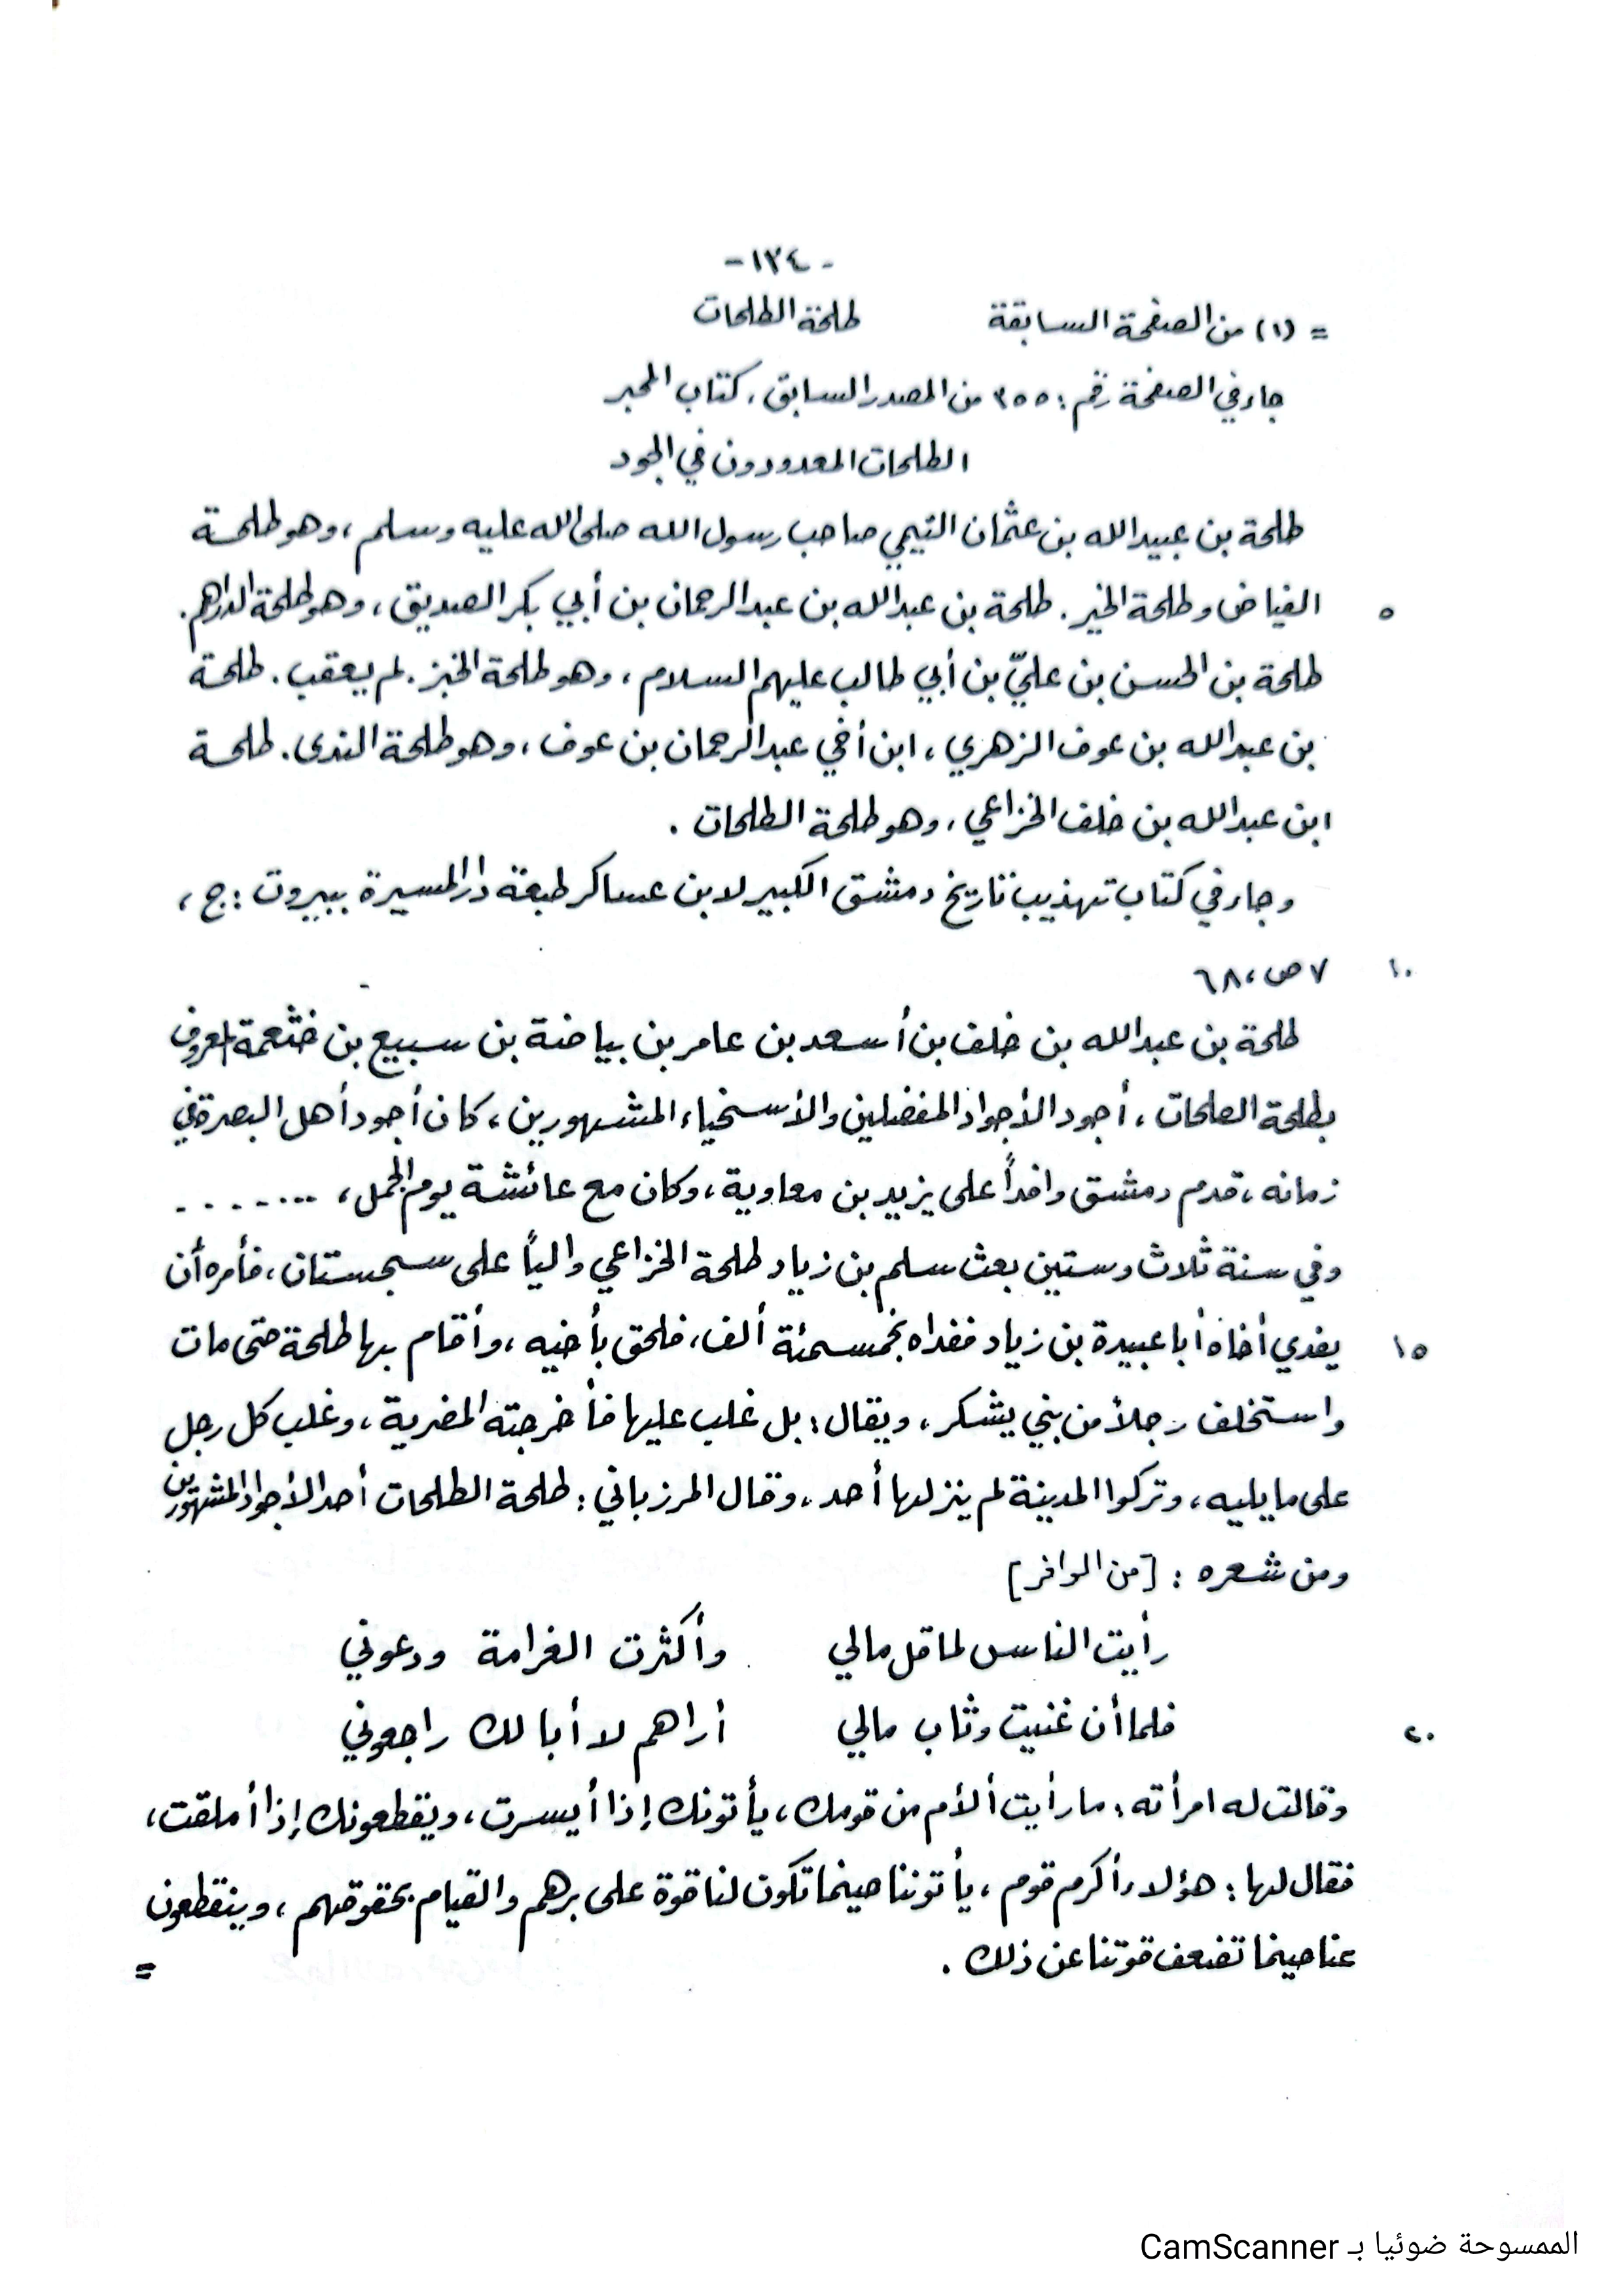 - ١٣٤ -
= (١) من الصفحة السابقة طلحة الطلحات
جاء في الصفحة رقم: ٣٥٥ من المصدر السابق، كتاب المحبر
الطلحات المعدودون في الجود
طلحة بن عبيدالله بن عثمان التيمي صاحب رسول الله صلى الله عليه وسلم، وهو طلحة
٥ الفياض وطلحة الخير. طلحة بن عبدالله بن عبدالرحمان بن أبي بكر الصديق، وهو طلحة الدراهم.
طلحة بن الحسن بن عليّ بن أبي طالب عليهم السلام، وهو طلحة الخبز. لم يعقب. طلحة
بن عبدالله بن عوف الزهري، ابن أخي عبدالرحمان بن عوف، وهو طلحة الندى. طلحة
ابن عبدالله بن خلف الخزاعي، وهو طلحة الطلحات.
وجاء في كتاب تهذيب تاريخ دمشق الكبير لابن عساكر طبعة دار المسيرة ببيروت: ج،
١٠ ٧ ص، ٦٨
طلحة بن عبدالله بن خلف بن أسعد بن عامر بن بياضة بن سبيع بن خثعمة المعروف
بطلحة الطلحات، أجود الأجواد المفضلين والأسخياء المشهورين، كان أجود أهل البصرة في
زمانه، قدم دمشق وافداً على يزيد بن معاوية، وكان مع عائشة يوم الجمل، ........
وفي سنة ثلاث وستين بعث سلم بن زياد طلحة الخزاعي والياً على سجستان، فأمره أن
١٥ يفدي أخاه أبا عبيدة بن زياد ففداه بخمسمئة ألف، فلحق بأخيه، وأقام بها طلحة حتى مات
واستخلف رجلاً من بني يشكر، ويقال: بل غلب عليها فأخرجته المضرية، وغلب كل رجل
على ما يليه، وتركوا المدينة لم ينزلها أحد، وقال المرزباني: طلحة الطلحات أحد الأجواد المشهورين
ومن شعره: [من الوافر]
رأيت الناس لما قل مالي وأكثرت الغرامة ودعوني
٢٠ فلما أن غنيت وثاب مالي أراهم لا أبا لك راجعوني
وقالت له امرأته: ما رأيت ألأم من قومك، يأتونك إذا أيسرت، ويقطعونك إذا أملقت،
فقال لها: هؤلاء أكرم قوم، يأتوننا حينما تكون لنا قوة على برهم والقيام بحقوقهم، وينقطعون
عنا حينما تضعف قوتنا عن ذلك. =
الممسوحة ضوئيا بـ CamScanner